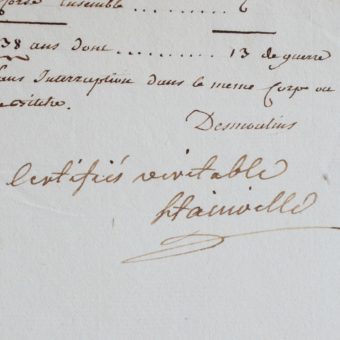 ensemble ........ 6
38 ans dont .......... 13 de guerre
sans Interruption dans le meme Corps ou
Desmoulins
Certifiés véritable
Stainville